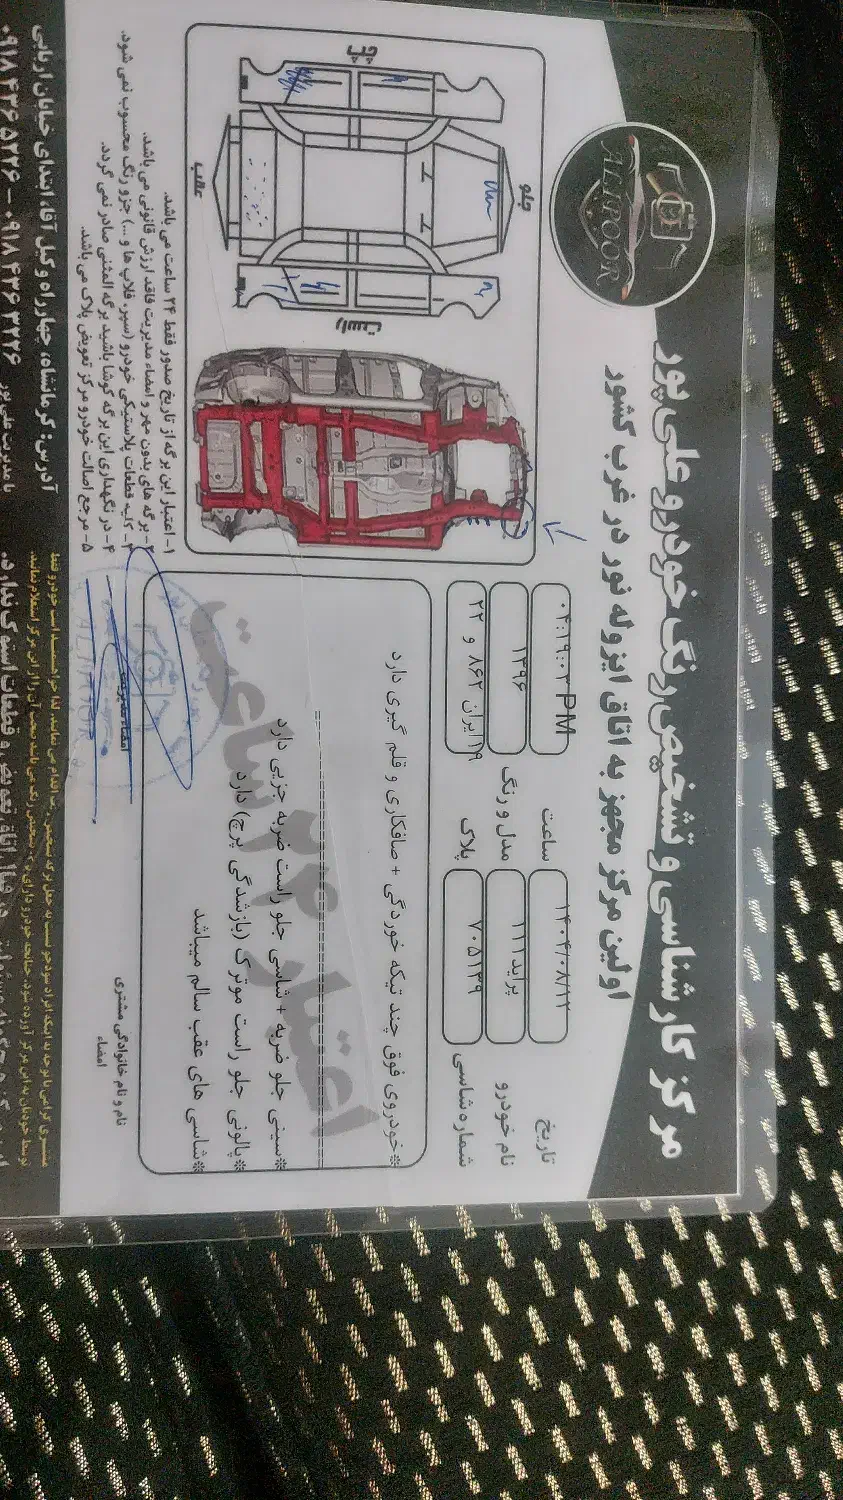 مرکز کارشناسی و تشخیص رنگ خودرو علی پور
اولین مرکز مجهز به اتاق ایزوله نور در غرب کشور
ALIPOOR
تاریخ ۱۴۰۴/۰۸/۱۲ ساعت ۰۴:۱۹:۰۳ PM
نام خودرو پراید۱۱۱ مدل و رنگ ۱۳۹۶
شماره شاسی ۷۰۵۱۳۹ پلاک
جلو
عقب
چپ
راست
*خودروی فوق چند تیکه خوردگی + صافکاری و قلم گیری دارد
*سینی جلو ضربه + شاسی جلو راست ضربه جزیی دارد
*پالونی جلو راست موترک (بازشدگی پرچ) دارد
*شاسی های عقب سالم میباشد
اعتبار ۲۴ ساعت
۱- اعتبار این برگه از تاریخ صدور فقط ۲۴ ساعت می باشد.
۲- برگه های بدون مهر و امضاء مدیریت فاقد ارزش قانونی می باشد.
۳- کلیه قطعات پلاستیکی خودرو (سپر، فلاپ ها و ...) جزو رنگ محسوب نمی شود.
۴- در نگهداری این برگه کوشا باشید برگه المثنی صادر نمی گردد.
۵- مرجع اصالت خودرو مرکز تعویض پلاک می باشد.
نام و نام خانوادگی مشتری
امضاء
آدرس: کرمانشاه، چهارراه وکیل آقا، ابتدای خیابان اربابی